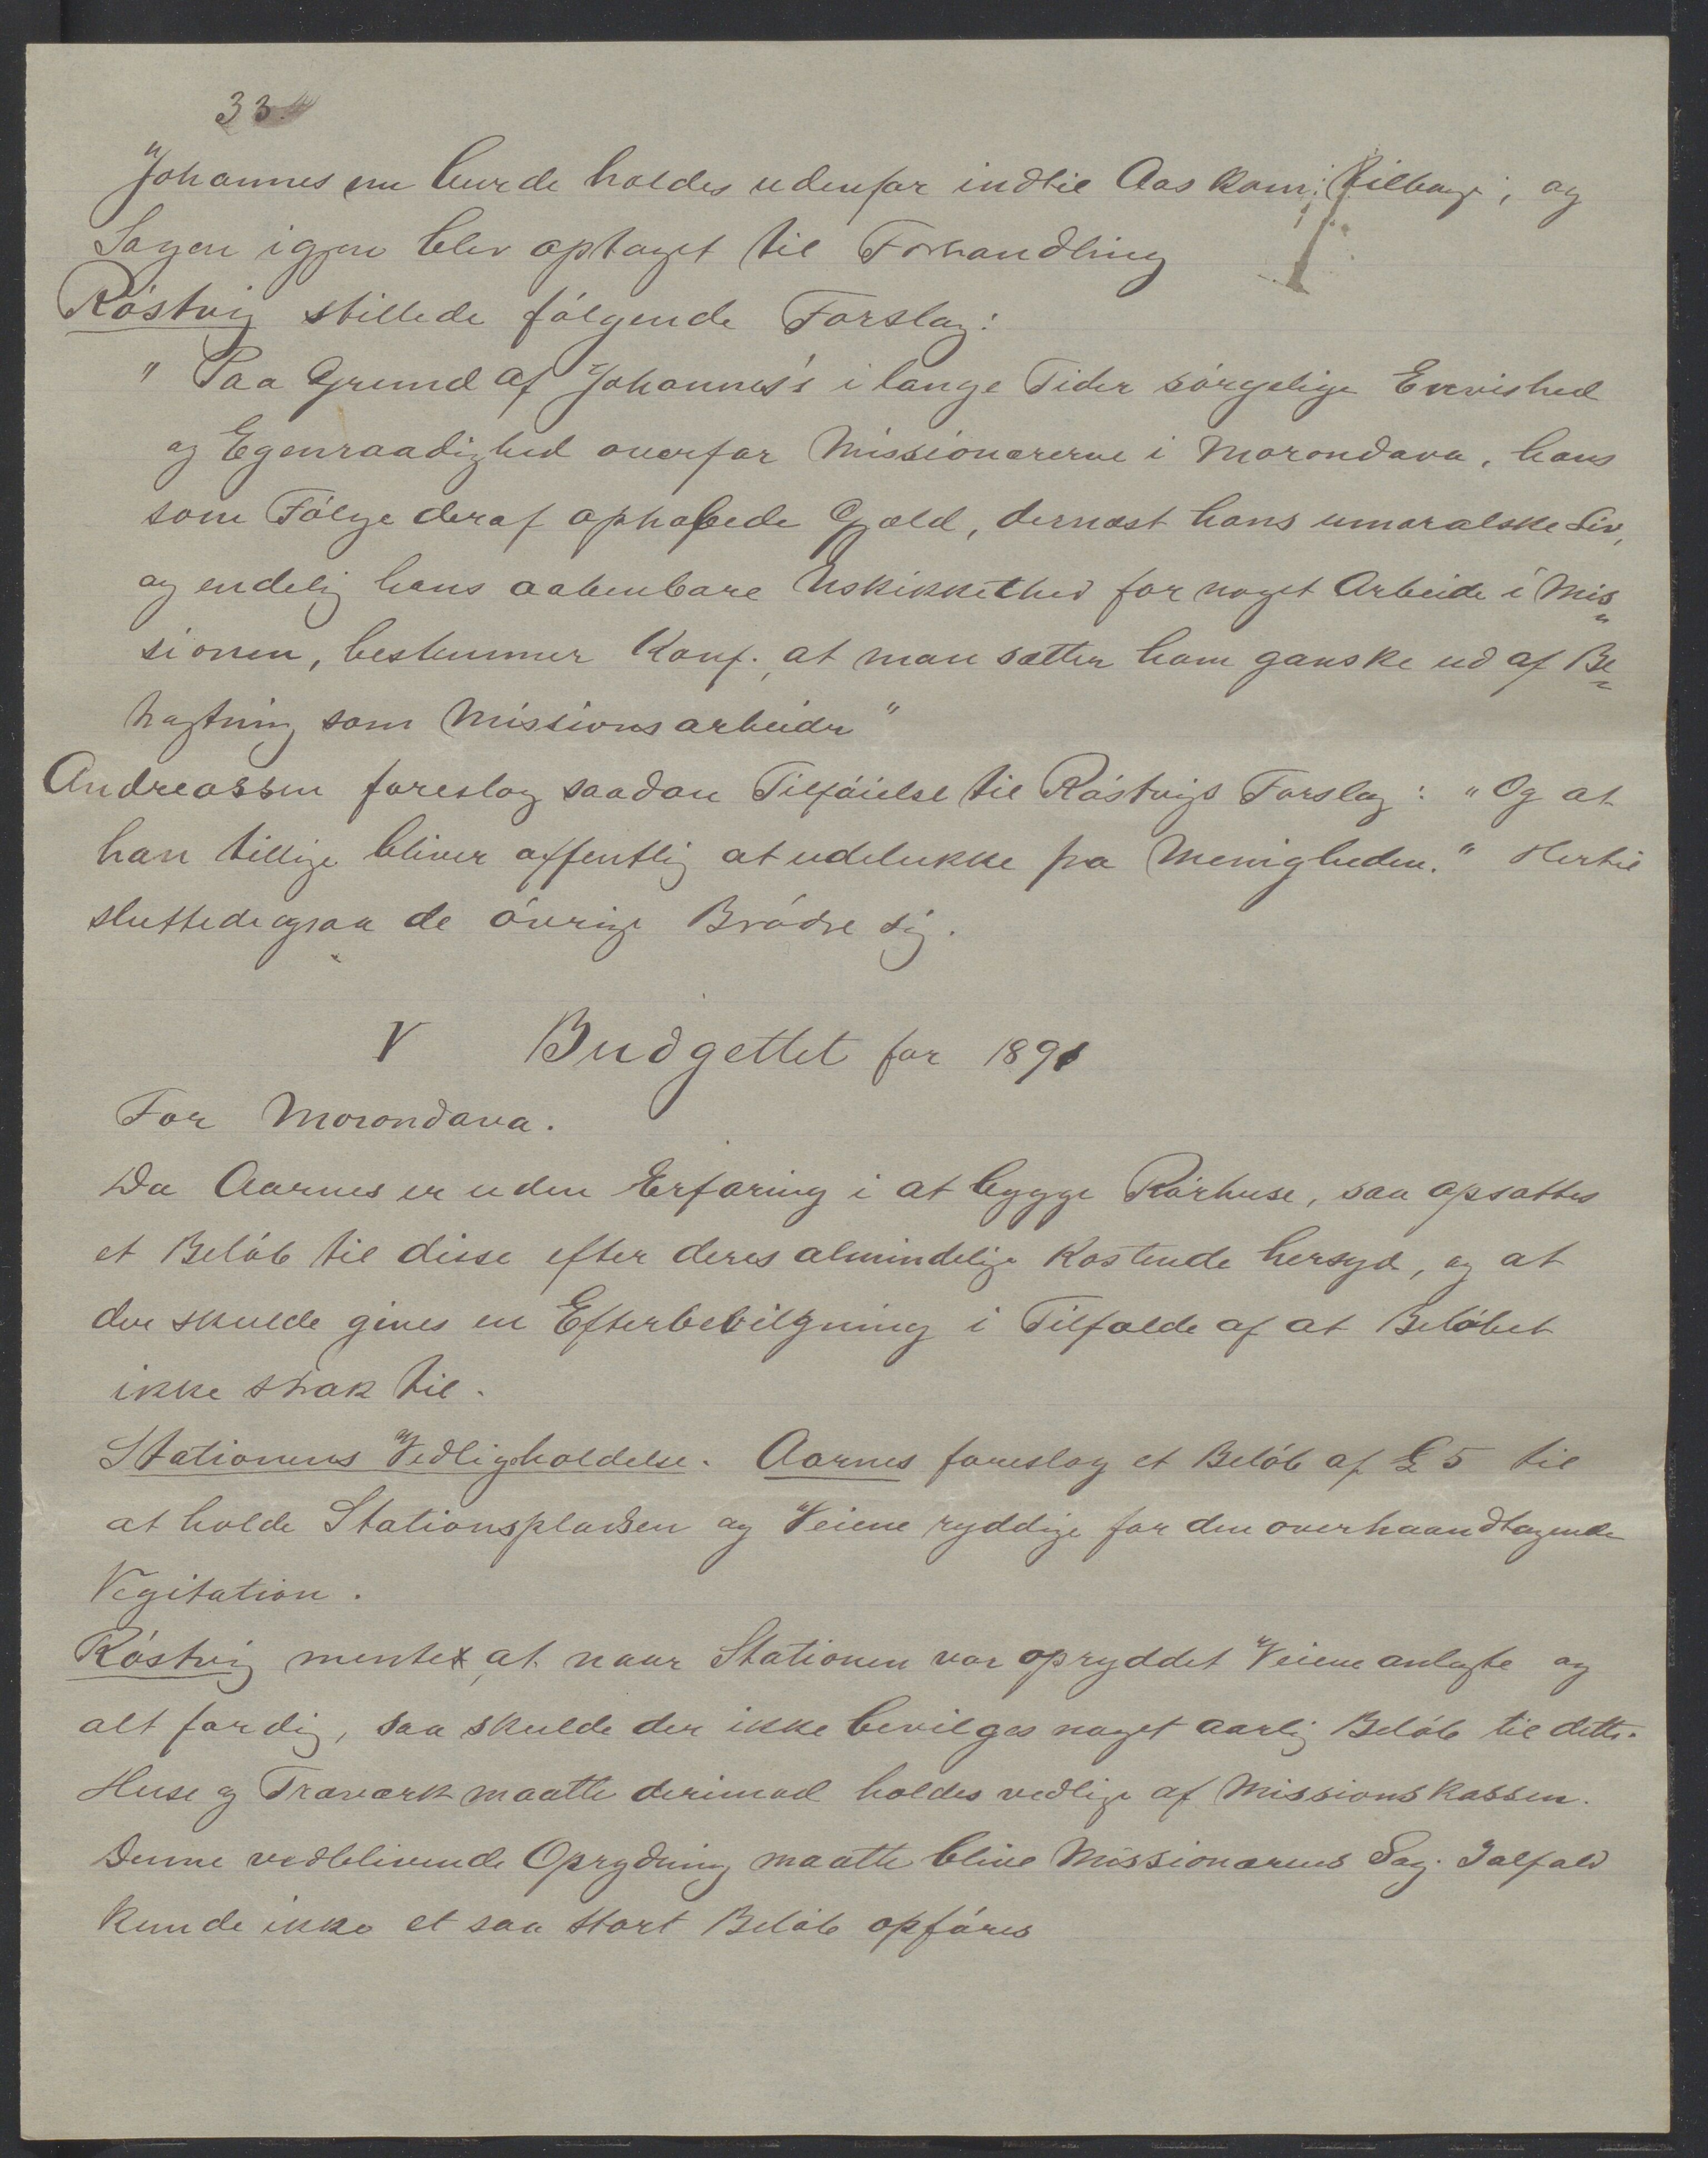 33.
Johannes nu burde holdes udenfor indtil Aas kom tilbage, og
Sagen igjen blev optaget til Forhandling
Röstvig stillede fölgende Forslag:
"Paa Grund af Johannes's i lange Tider sörgelige Envished
og Egenraadighed overfor Missionærerne i Morondava, hans
som Fölge deraf ophobede Gjæld, dernæst hans umoralske Liv,
og endelig hans aabenbare Uskikkethed for noget Arbeide i Mis
sionen, bestemmer Konf., at man sætter ham ganske ud af Be
tragtning som Missionsarbeider"
Andreassen foreslog saadan Tilföielse til Röstvigs Forslag: "Og at
han tillige bliver offentlig at udelukke fra Menigheden." Hertil
sluttede ogsaa de övrige Brödre sig.
V Budgettet for 1891
For Morondava.
Da Aarnes er uden Erfaring i at bygge Rörhuse, saa opsattes
et Belöb til disse efter deres almindelige Kostende hersyd, og at
der skulde gives en Efterbevilgning i Tilfælde af at Belöbet
ikke strak til.
Stationens Vedligeholdelse. Aarnes foreslog et Belöb af £ 5 til
at holde Stationspladsen og Veiene ryddige for den overhaandtagende
Vegitation.
Röstvig mente, at naar Stationen var opryddet Veiene anlagte og
alt færdig, saa skulde der ikke bevilges noget aarlig Belöb til dette.
Huse og Træværk maatte derimod holdes vedlige af Missionskassen.
Denne vedblivende Oprydning maatte blive Missionærens Sag. Ialfald
kunde ikke et saa stort Belöb opföres